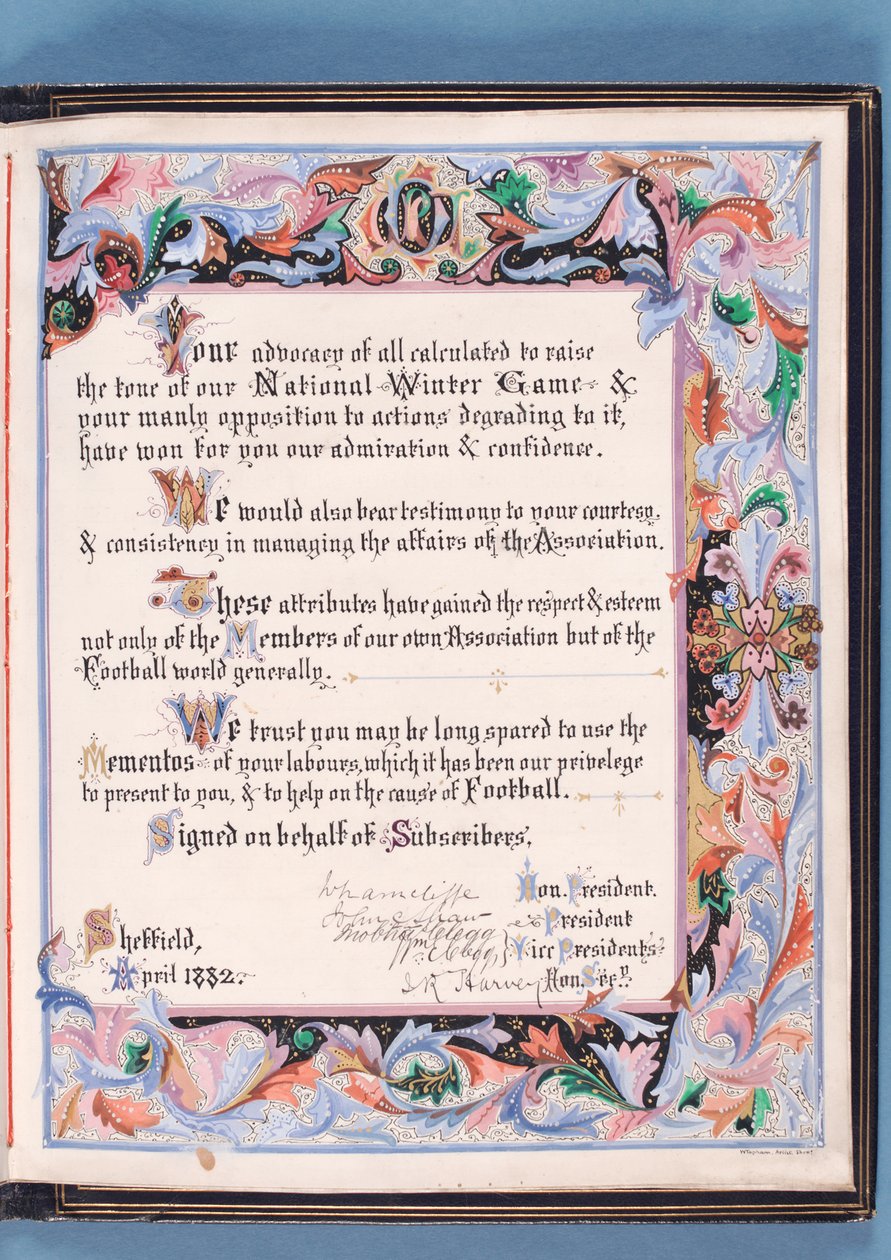 Your advocacy of all calculated to raise
the tone of our National Winter Game &
your manly opposition to actions degrading to it,
have won for you our admiration & confidence.
We would also bear testimony to your courtesy.
& consistency in managing the affairs of the Association.
These attributes have gained the respect & esteem
not only of the Members of our own Association but of the
Football world generally.
We trust you may be long spared to use the
Mementos of your labours, which it has been our privelege
to present to you, & to help on the cause of Football.
Signed on behalf of Subscribers,
Wharncliffe Hon. President.
John C Shaw President
Clegg
Wm Clegg } Vice Presidents
Sheffield,
April 1882.
J K Harvey Hon. Secy.
W Topham, Artist, Sheffd